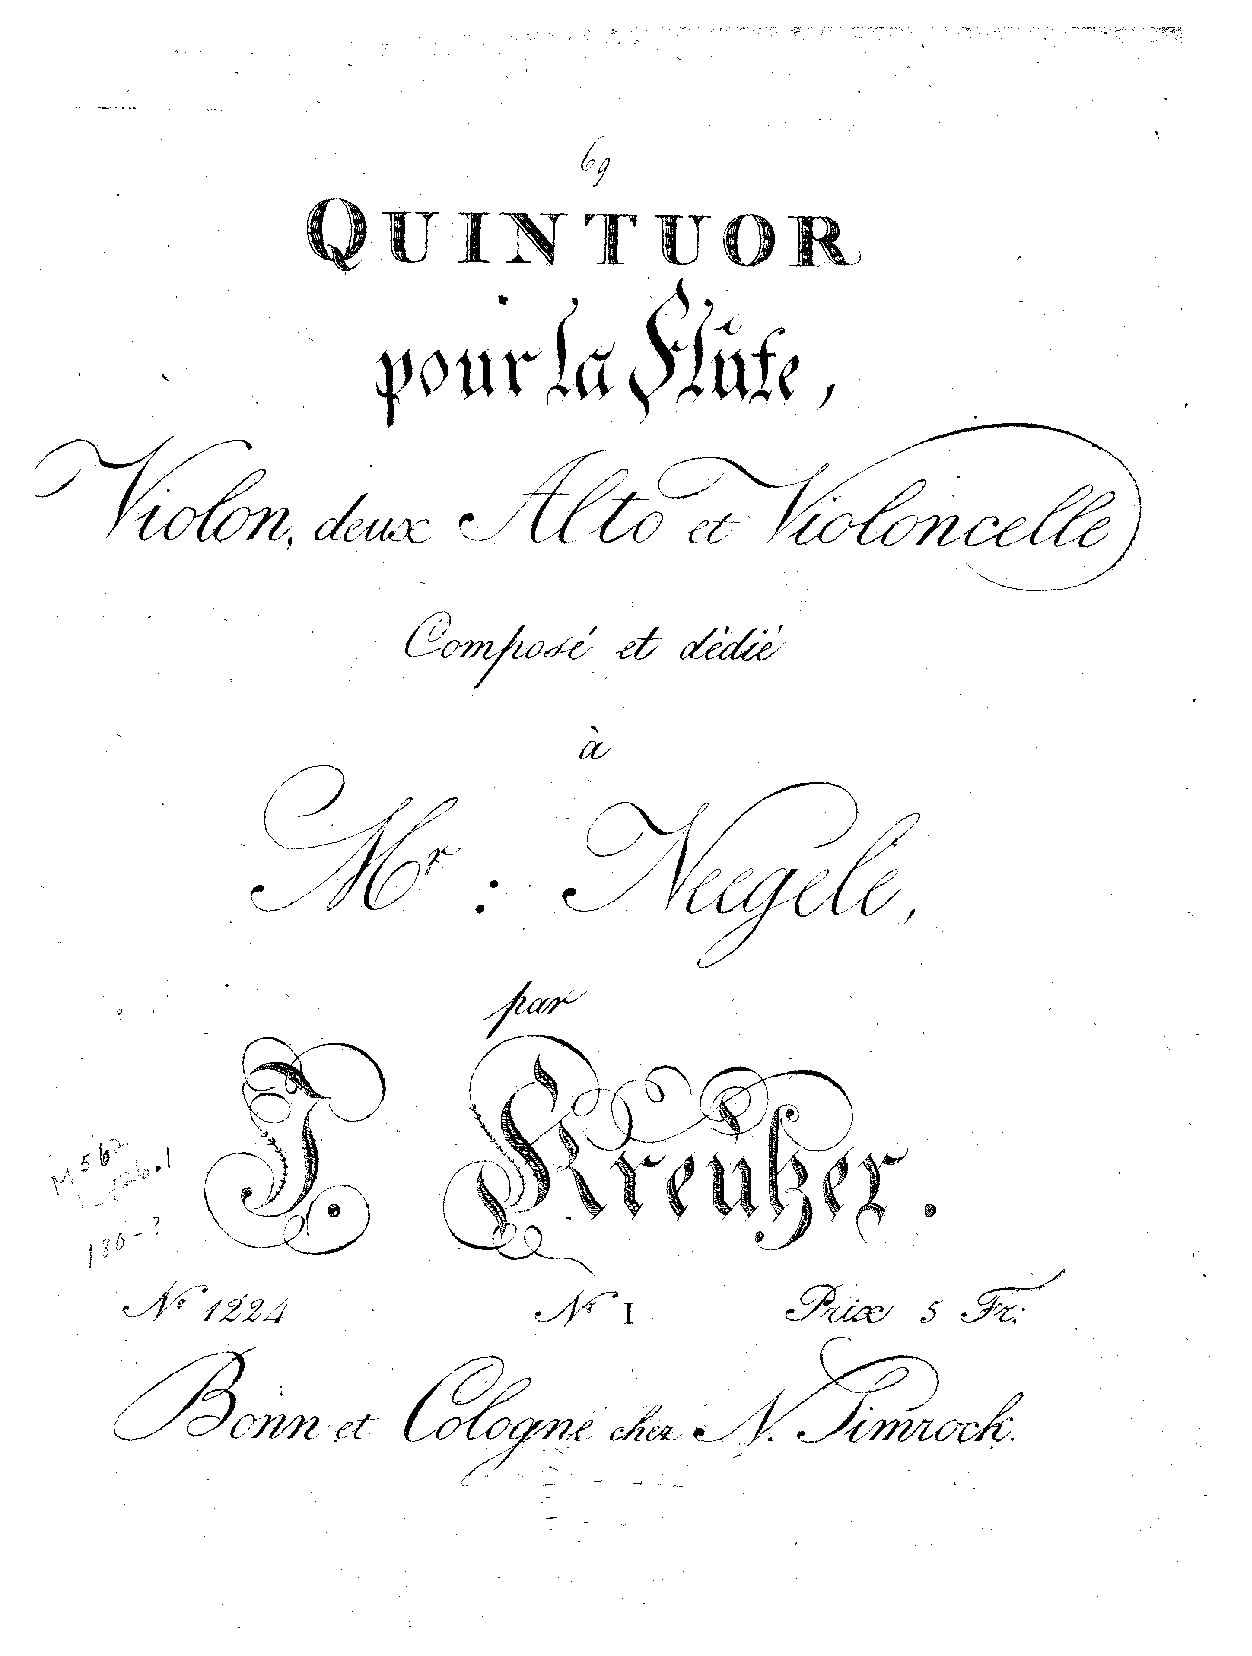 69
QUINTUOR
pour la Flûte,
Violon, deux Alto et Violoncelle
Composé et dédié
à
Mr: Neegele,
par
I. Kreutzer.
No 1224 No I Prix 5 Fr:
Bonn et Cologne chez N. Simrock.